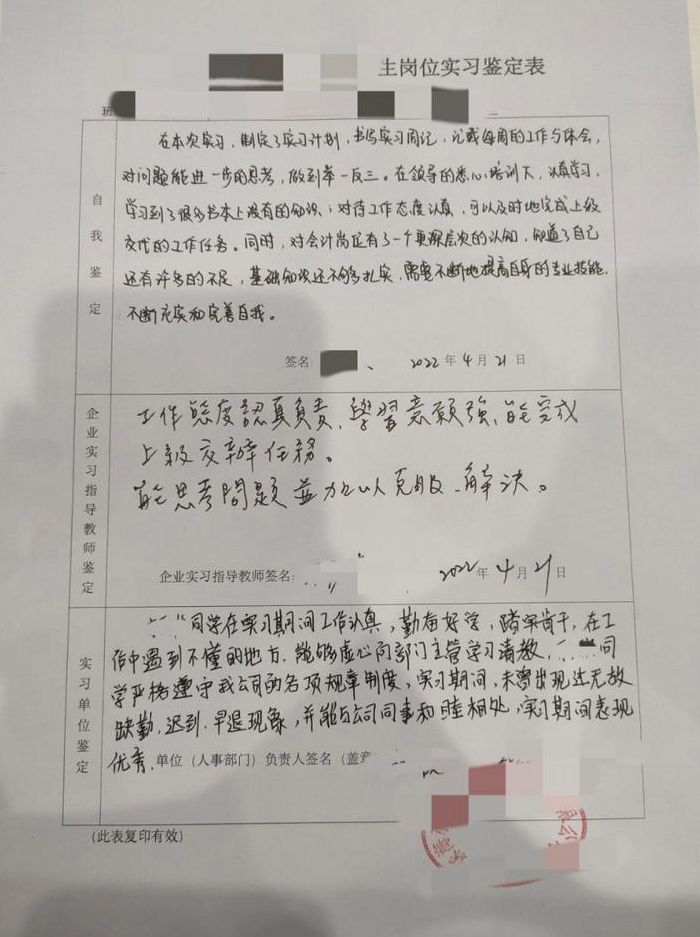 主岗位实习鉴定表
班
自我鉴定
在本次实习，制定了实习计划，书写实习周记，记载每周的工作与体会，
对问题能进一步的思考，做到举一反三。在领导的悉心培训下，认真学习，
学习到了很多书本上没有的知识；对待工作态度认真，可以及时地完成上级
交代的工作任务。同时，对会计岗位有了一个更深层次的认知，知道了自己
还有许多的不足，基础知识还不够扎实，需要不断地提高自身的专业技能，
不断充实和完善自我。
签名 2022年4月21日
企业实习指导教师鉴定
工作態度認真負責、學習意願強、能完成
上級交辦任務。
能思考問題並加以克服、解決。
企业实习指导教师签名: 2022年4月21日
实习单位鉴定
同学在实习期间工作认真，勤奋好学，踏实肯干，在工
作中遇到不懂的地方，能够虚心向部门主管学习请教，同
学严格遵守我公司的各项规章制度，实习期间，未曾出现过无故
缺勤，迟到、早退现象，并能与公司同事和睦相处，实习期间表现
优秀.单位（人事部门）负责人签名（盖章
限公
(此表复印有效)